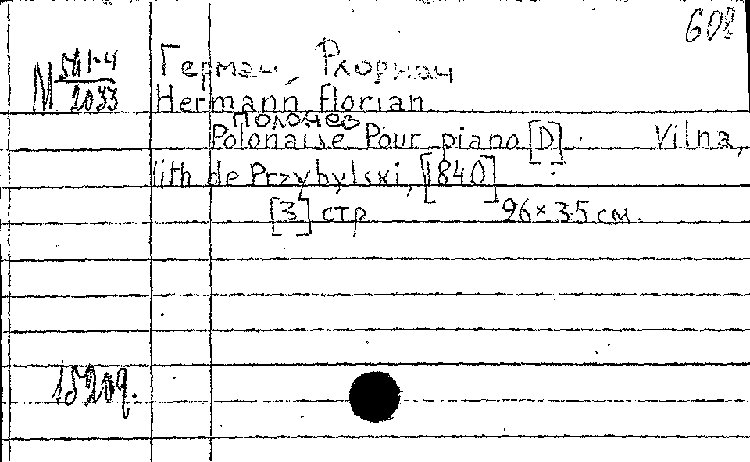 608
М 541-4
2033
Герман, Флориан
Hermann, Florian
Полонез
Polonaise Pour piano [D]. Vilna,
lith de Przybylski, [1840]
[3] стр 26×35 см.